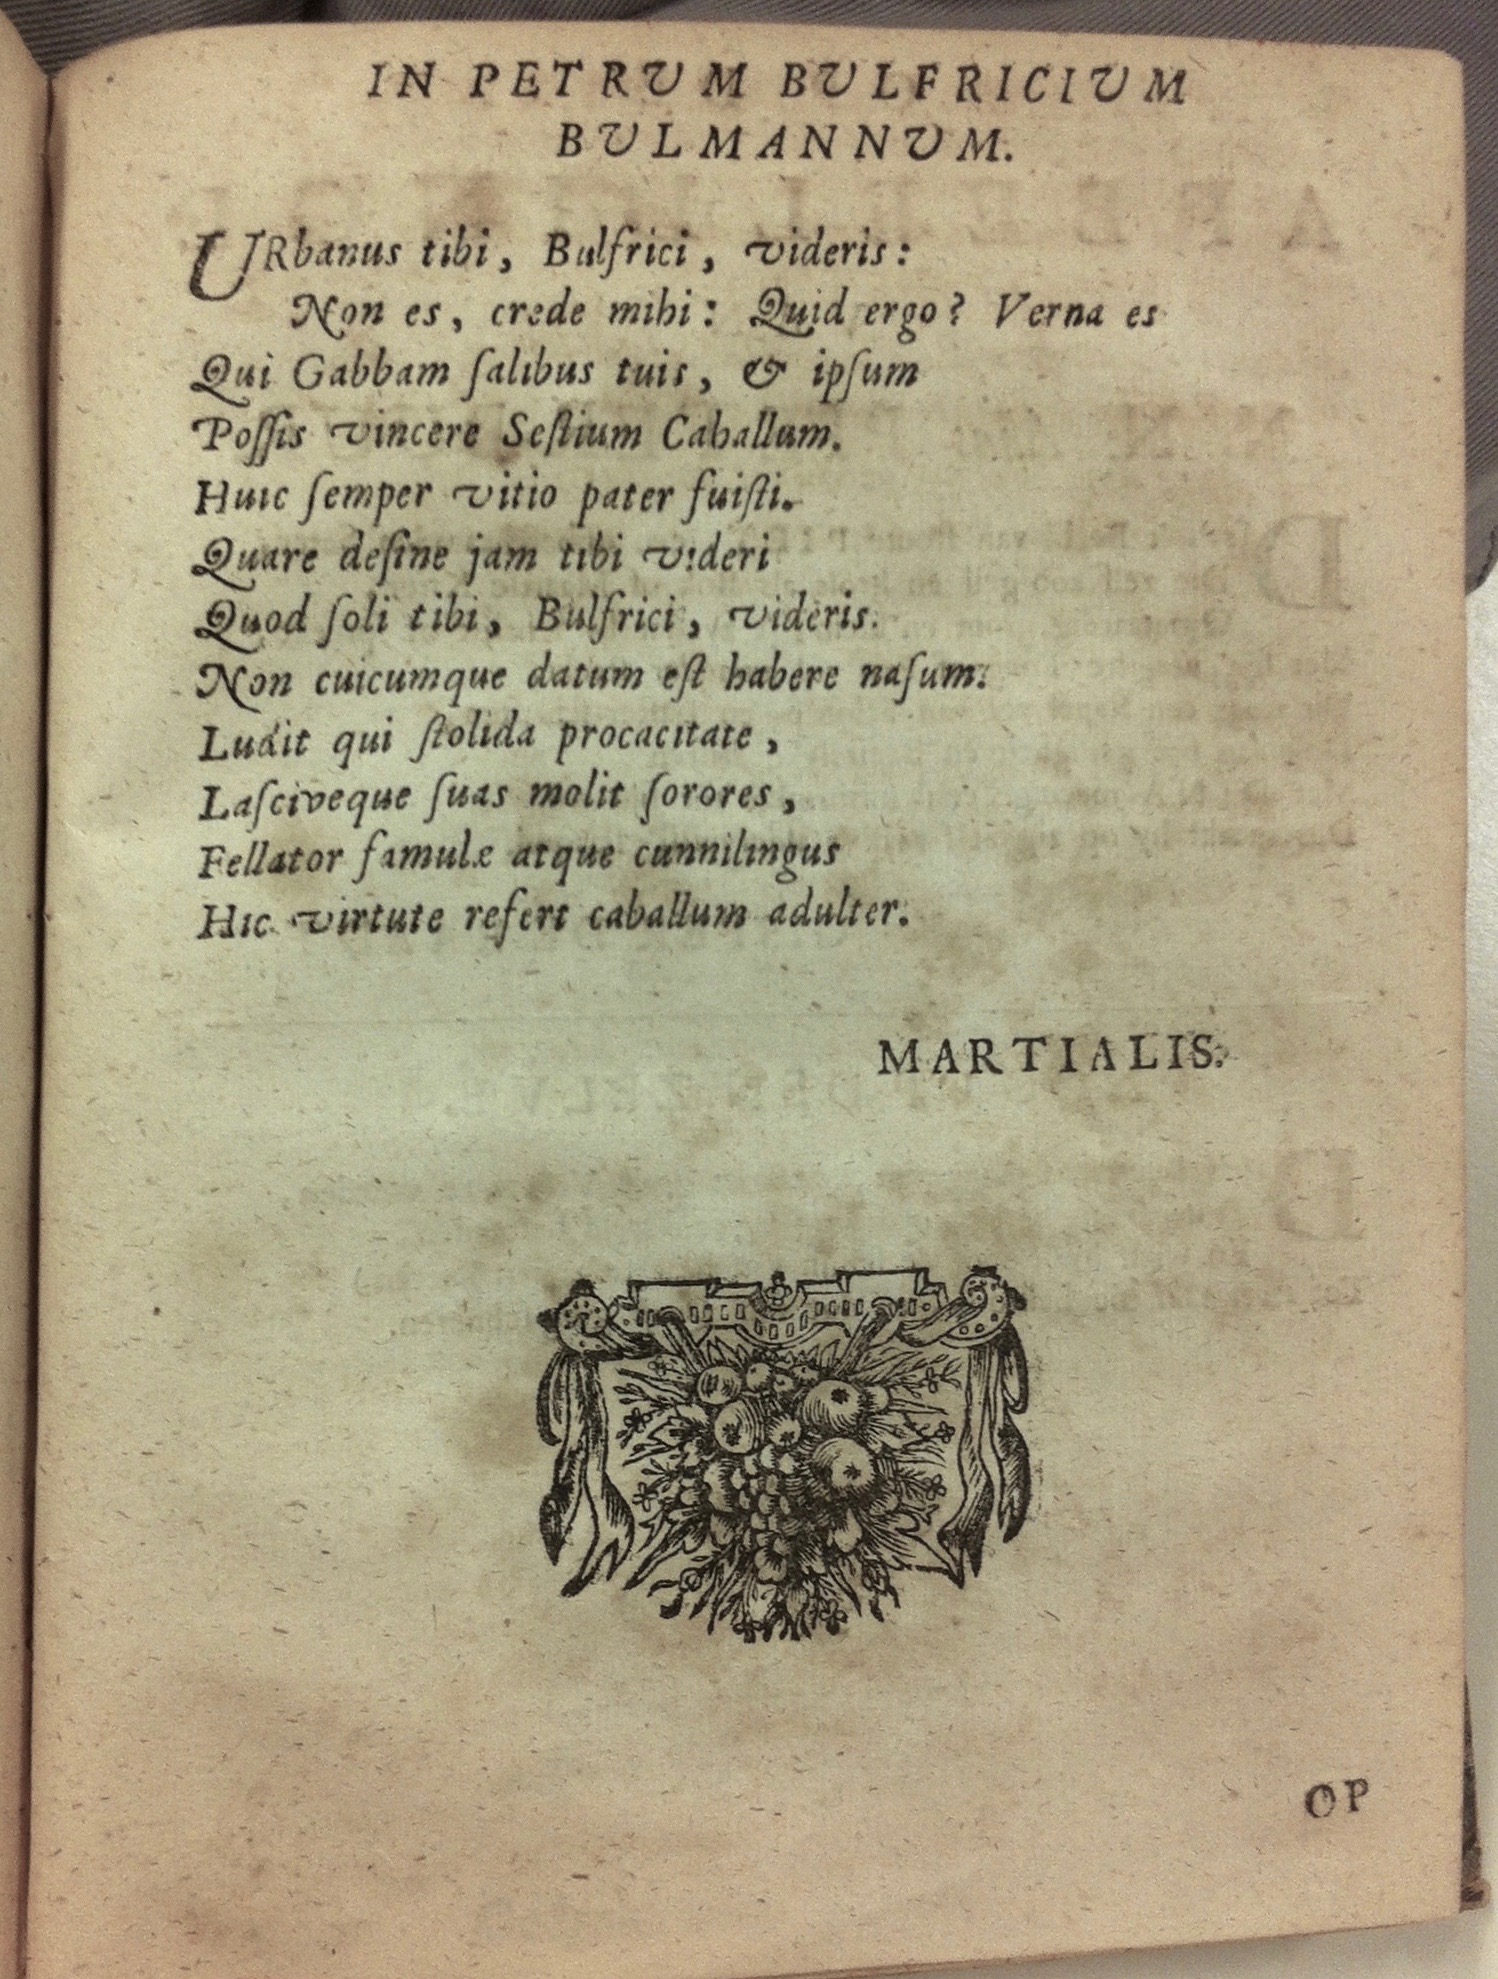 IN PETRUM BULFRICIUM
BULMANNUM.
URbanus tibi, Bulfrici, videris:
Non es, crede mihi: Quid ergo? Verna es
Qui Gabbam ſalibus tuis, & ipſum
Poſſis vincere Seſtium Caballum.
Huic ſemper vitio pater fuiſti.
Quare deſine jam tibi videri
Quod ſoli tibi, Bulfrici, videris.
Non cuicumque datum eſt habere naſum.
Ludit qui ſtolida procacitate,
Laſciveque ſuas molit ſorores,
Fellator famulæ atque cunnilingus
Hic virtute refert caballum adulter.
MARTIALIS.
OP